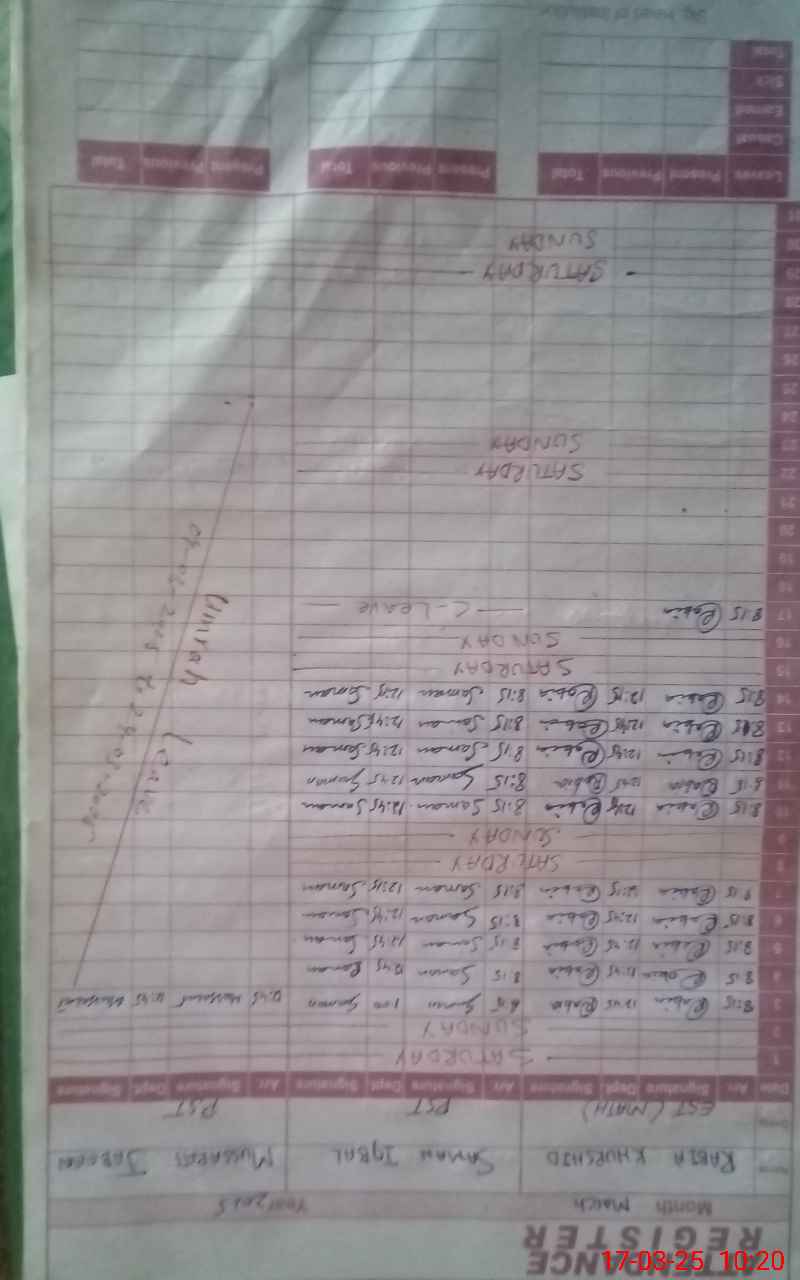 ATTENDANCE
REGISTER
Month March Year 2025
Name RABIA KHURSHID SAMAN IQBAL MUSSARAT JABEEN
EST (MATH) PST PST
Date Arr. Signature Dept. Signature Arr. Signature Dept. Signature Arr. Signature Dept. Signature
1 SATURDAY
2 SUNDAY
3 8:15 Rabia 12:45 Rabia Saman 1:00 Saman Mussarat 12:45 Mussarat
4 8:15 Rabia 12:45 Rabia 8:15 Saman 12:45 Saman
5 8:15 Rabia 12:45 Rabia 8:15 Saman 12:45 Saman
6 8:15 Rabia 12:45 Rabia 8:15 Saman 12:45 Saman
7 8:15 Rabia 12:15 Rabia 8:15 Saman 12:15 Saman
8 SATURDAY
9 SUNDAY
10 8:15 Rabia 12:45 Rabia 8:15 Saman 12:45 Saman
11 8:15 Rabia 12:45 Rabia 8:15 Saman 12:45 Saman
12 8:15 Rabia 12:45 Rabia 8:15 Saman 12:45 Saman
13 8:15 Rabia 12:45 Rabia 8:15 Saman 12:45 Saman
14 8:15 Rabia 12:15 Rabia 8:15 Saman 12:15 Saman
15 SATURDAY
16 SUNDAY
17 8:15 Rabia C-Leave
18
19
20
21
22 SATURDAY
23 SUNDAY
24
25
26
27
28
29 SATURDAY
30 SUNDAY
31
Umrah Leave
2025 to 24-03-2025
Leaves Present Previous Total Present Previous Total Present Previous Total
Casual
Earned
Sick
Total
Sig. Head of Institution
17-03-25 10:20